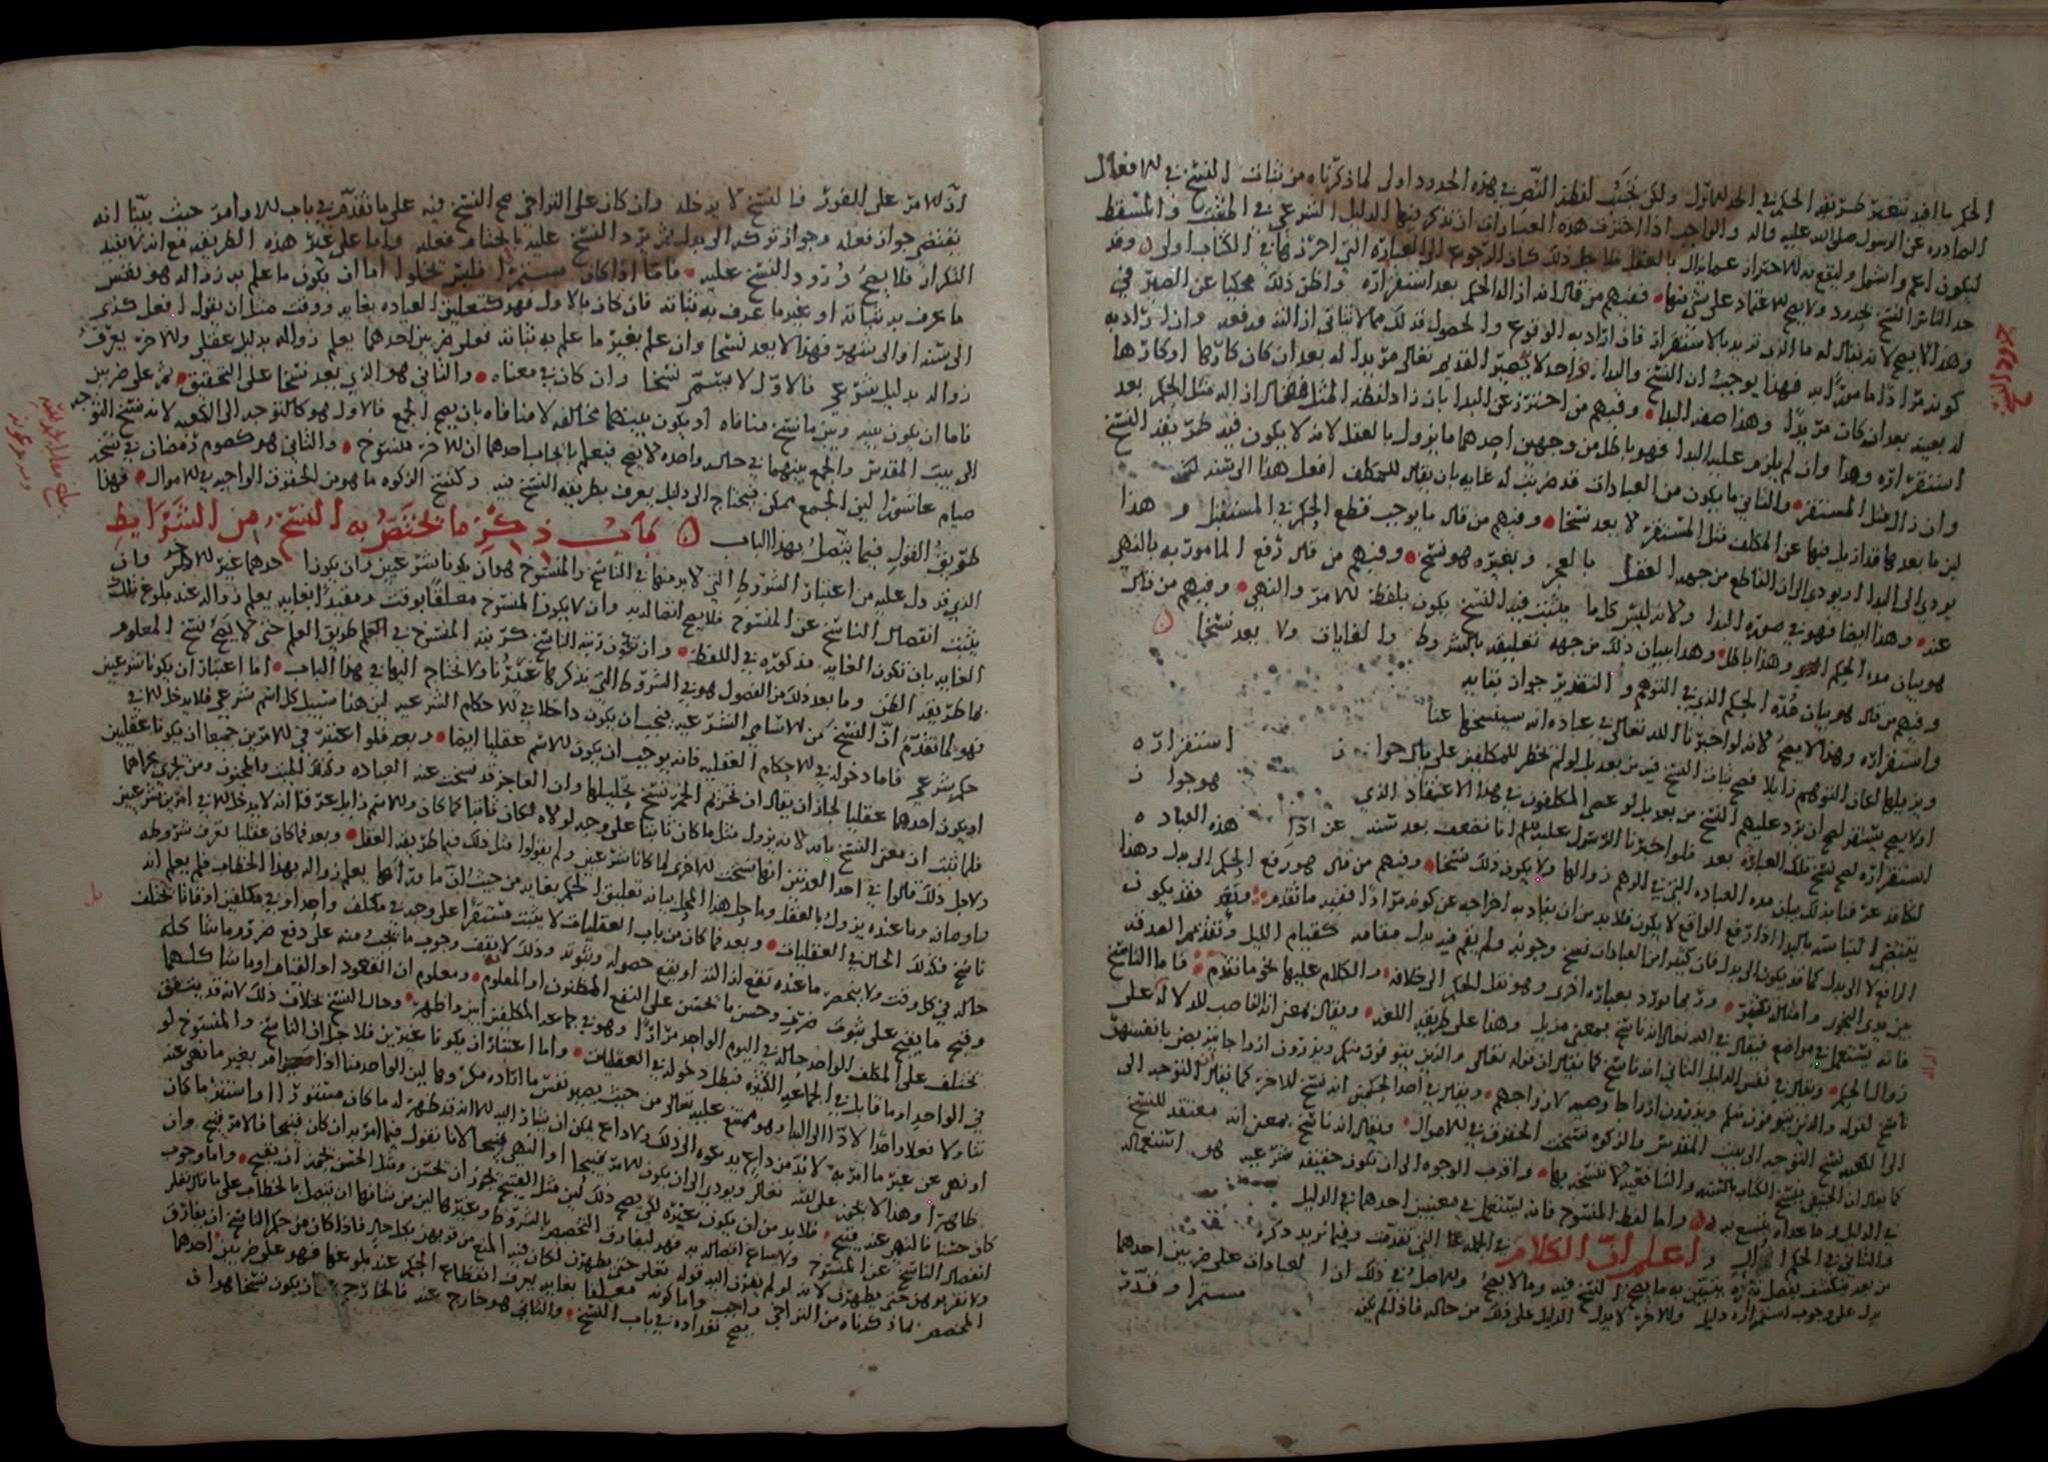 الحكم بما افيد بتغير طريقه الحكم في الحد الاول ولكن تجنب لفظة النص في هذه الحدود اولى لما ذكرناه من نيابة النسخ في الافعال
الصادره عن الرسول صلى الله عليه واله والواجب اذا اختزلت هذه العبارات ان نذكر فيها الدليل الشرعي في المثبت والمسقط
ليكون اعم واشمل وليقع به الاحتراز عما يزال بالعقل فلاجل ذلك كان الرجوع الى العبارة التي احرزناها في الكتاب اولى وقد
حد الناس النسخ بحدود ولا يصح الاعتماد على شي منها فمنهم من قال انه ازالة الحكم بعد استقراره واظن ذلك محكيا عن
وهذا لا يصح لانه يقال له ما الذي تريد بالاستقرار فان اراد به الوقوع والحصول فذلك مما لا يتاتى ازالته ورفعه وان اراد به
كونه مرادا مامورا به فهذا يوجب ان النسخ والبدا واحد لا يصير القديم تعالى مزيلا له بعد ان كان كارها او كارها
له بعينه بعد ان كان مريدا وهذا صفه البدا ومنهم من احترز عن البدا بان زاد لفظه المثل فقال ازالة مثل الحكم بعد
استقراره وهذا وان لم يلزم عليه البدا فهو باطل من وجهين احدهما ما يزول بالعقل لانه لا يكون فيه طريقه النسخ
وان زال مثل المستقر والثاني ما يكون من العبادات قد ضربت له غايه بان يقال للمكلف افعل هذا الى سنه
لان ما بعدها قد ازيل فيها عن المكلف مثل المستقر لا يعد نسخا ومنهم من قال ما يوجب قطع الحكم في المستقبل وهذا
يودي الى البدا او يودي الى ان القاطع من جهه العقل بالعجز وبغيره هو نسخ ومنهم من قال رفع المامور به بالنهي
عنه وهذا ايضا فهو في صورة البدا ولانه ليس كل ما يثبت فيه النسخ يكون بلفظه الامر والنهي ومنهم من قال
هو بيان مدة الحكم وهذا باطل وهذا بيان ذلك من جهه تعليقه بالشروط والغايات ولا يعد نسخا
ومنهم من قال هو بيان مدة الحكم الذي في التوهم والتقدير جواز بقايه
واستقراره وهذا لا يصح لانه لو اخبرنا الله تعالى في عبادة انه سينسخها عنا
ويزيلها لكان التوهم زايلا فصح نيابة النسخ فيه من بعد بل لو لم يخطر للمكلفين على بال جواز استقراره
اولا يصح يستقر لصح ان يرد عليهم النسخ من بعد بل لو عصى المكلفون في هذا الاعتقاد الذي هو جواز
استقراره لصح نسخ تلك العبادة بعد فلو اخبرنا الرسول عليه السلم انا نضعف بعد سنه عن ادا هذه العباده
لكان قد عرفنا بذلك بيان مده العباده التي في الوهم زوالها ولا يكون ذلك نسخا ومنهم من قال هو رفع الحكم الى بدل وهذا
يقتضي التباسه بالبدا اذ ارفع الواقع لا يكون فلا بد من ان يفاد به اخراجه عن كونه مرادا ففيه ما تقدم فقد يكون
الرافع لا الى بدل كما قد يكون الى بدل فان كثيرا من العبادات نسخ وجوبه ولم يقم فيه بدل مقامه كقيام الليل وتقديم الصدقه
بين يدي النجوى وامثاله تكثر وربما يورد بعبارة اخرى وهو نقل الحكم الى خلافه والكلام عليها نحو ما تقدم فاما الناسخ
فانه يستعمل في مواضع فيقال في الله تعالى انه ناسخ بمعنى مزيل وهذا على طريقه اللغه ويقال بمعنى انه الناصب للدلالة على
زوال الحكم ويقال في نفس الدليل الثاني انه ناسخ كما يقال ان قوله تعالى والذين يتوفون منكم ويذرون ازواجا يتربصن بانفسهن
ناسخ لقوله والذين يتوفون منكم ويذرون ازواجا وصيه لازواجهم ويقال في احد الحكمين انه نسخ للاخر كما يقال التوجه الى
الكعبه نسخ التوجه الى بيت المقدس والزكوه نسخت الحقوق في الاموال ويقال انه ناسخ بمعنى انه معتقد للنسخ
كما يقال ان الحنفي ينسخ الكتاب بالسنه والشافعيه لا تنسخه بها واقرب الوجوه الى ان يكون حقيقه شرعيه هو استعماله
في الدليل وما عداه يتسع به واما لفظ المنسوخ فانه يستعمل في معنيين احدهما في الدليل
والثاني في الحكم واعلم ان الكلام في الجمله التي تقدمت وفيما نريد ذكره
من بعد ينكشف بفصل نذكره يتبين به ما يصح النسخ فيه وما لا يصح والاصل في ذلك ان العبادات على ضربين احدهما
يدل على وجوب استمراره دليل والاخر لا يدل الدليل على ذلك من حاله فاذا لم يكن مستمرا وقدر
حدود النسخ
ان الامر على الفور فالنسخ لا يدخله وان كان على التراخي صح النسخ فيه على ما تقدم في باب الاوامر حيث بينا انه
يقتضي جواز فعله وجواز تركه الى بدل ثم يرد النسخ عليه واما على غير هذه الطريقه مع انه لا يفيد
التكرار فلا يصح ورود النسخ عليه فاما اذا كان مستمرا فليس يخلوا اما ان يكون ما علم به زواله هو نفس
ما عرف به ثباته او بغير ما عرف به ثباته فان كان بالاول فهو كتعليق العباده بغايه ووقت مثل ان يقول افعل كذى
الى سنه او الى شهر فهذا لا يعد نسخا وان علم بغير ما علم به ثباته فعلى ضربين احدهما يعلم زواله بدليل عقلي والاخر يعرف
زواله بدليل شرعي فالاول لا يسمى نسخا وان كان في معناه والثاني هو الذي يعد نسخا على التحقيق ثم على ضربين
فاما ان يكون بينه وبين ما نسخ منافاه او يكون بينهما مخالفه لا منافاه بان يصح الجمع فالاول هو كالتوجه الى الكعبه لانه نسخ التوجه
الى بيت المقدس والجمع بينهما في حاله واحده لا يصح فيعلم بايجاب احدهما ان الاخر منسوخ والثاني هو كصوم رمضان في نسخه
صيام عاشورا لان الجمع ممكن فيحتاج الى دليل يعرف بطريقه النسخ فيه وكنسخ الزكوه ما هو من الحقوق الواجبه في الاموال فهذا
طريق القول فيما يتصل بهذا الباب باب ذكر ما يختص به النسخ من الشرايط
الذي قد دل عليه من اعتبار الشروط التي لا بد منها في الناسخ والمنسوخ هو ان يكونا شرعيين وان يكون احدهما غير الاخر وان
يثبت انفصال الناسخ عن المنسوخ فلا يصح اتصاله به وان لا يكون المنسوخ معلقا بوقت ومقيدا بغايه يعلم زواله عند بلوغ تلك
الغايه بان تكون الغايه مذكوره في اللفظ وان تكون رتبة الناسخ كرتبه المنسوخ في العلم طريق العلم حتى لا يصح نسخ المعلوم
بما طريقه الظن وما بعد ذلك من الفصول فهو في الشروط التي يذكرها غيرنا ولا نحتاج اليها في هذا الباب اما اعتبار ان يكونا شرعيين
فهو لما تقدم ان النسخ من الاسامي الشرعيه فيجب ان يكون داخلا في الاحكام الشرعيه لان هذا سبيل كل اسم شرعي فلا يدخل الا في
حكم شرعي فاما دخوله في الاحكام العقليه فانه يوجب ان يكون الاسم عقليا ايضا وبعد فلو اعتبر في الامرين جميعا ان يكونا عقليين
او يكون احدهما عقليا لجاز ان يقال ان تحريم الخمر نسخ تحليلها وان العاجز قد نسخت عنه العباده وكذلك الميت والمجنون ومن يجري مجراهما
فلما ثبت ان معنى النسخ لانه يزول مثل ما كان ثابتا على وجه لولاه لكان ثابتا كما كان والاسم زايل عرفنا انه لا يدخل الا في امرين شرعيين
ولاجل ذلك قالوا في احد العدتين انها نسخت الاخرى لما كانا شرعيين ولم يقولوا مثل ذلك فيما طريقه العقل وبعد فما كان عقليا تعرف شروطه
واوصافه وما عنده يزول بالعقل وما حل هذا المحل بيانه تعليق الحكم بغايه من حيث ان ما قدامها يعلم زواله بهذا الخطاب فلم يعلم انه
ناسخ فكذلك الحال في العقليات وبعد فما كان من باب العقليات لا يثبت مستقرا على وجه في مكلف واحد او في مكلفين اوقاتا تختلف
حاله في كل وقت ولا ينحصر ما عنده تقع ازالته او يقع حصوله وثبوته وذلك لا يقف وجوب ما يجب منه على دفع ضرر وما شاكله
وقبح ما يقبح على ثبوت ضرر وحسن ما يحسن على النفع المظنون او المعلوم ومعلوم ان القعود او القيام او ما شاكلهما
يختلف على المكلف الواحد حاله في اليوم الواحد مرارا وهو في جماعه المكلفين ابين واظهر وحال النسخ بخلاف ذلك لانه قد يتفق
في الواحد او ما قابله في الجماعه الكثيره فبطل دخوله في العقليات واما اعتبار ان يكونا غيرين فلاجل ان الناسخ والمنسوخ لو
تناولا فعلا واحدا لادا الى البدا وهو ممتنع عليه تعالى من حيث يصير نفس ما اراده مكروها لان الواحد منا اذا امر بغير ما نهى عنه
او نهى عن غير ما امر به لا بد من داع يدعوه الى ذلك ولا داع يمكن ان يشار اليه الا انه قد ظهر له ما كان مستورا او استتر ما كان
ظاهرا وهذا لا يجوز على الله تعالى ويودي الى ان يكون الامر قبيحا او النهي قبيحا لانا نقول فيما امر به ان كان قبيحا فالامر قبيح وان
كان حسنا فالنهي عنه قبيح فلا بد من ان يكون غيره لكي يصح ذلك لان مثل القبيح يجوز ان يحسن ومثل الحسن يجوز ان يقبح واما وجوب
انفصال الناسخ عن المنسوخ ولا يساغ اتصاله به فهو ليفارق التخصيص بالشروط وغيرها لان من شانها ان يتصل بالخطاب على ما قال تعالى
ولا تقربوهن حتى يطهرن لانه لو لم يقرن اليه قوله تعالى حتى يطهرن لكان فيه المنع من قربهن بكل حال فاذا كان من حكم الناسخ ان يفارق
المخصص بما ذكرناه من التراخي واجب واما كونه معلقا بغايه يعرف انقطاع الحكم عند بلوغها فهو على ضربين احدهما
يصح تعداده في باب النسخ والثاني هو خارج عنه فالخارج ان يكون نسخا هو ان